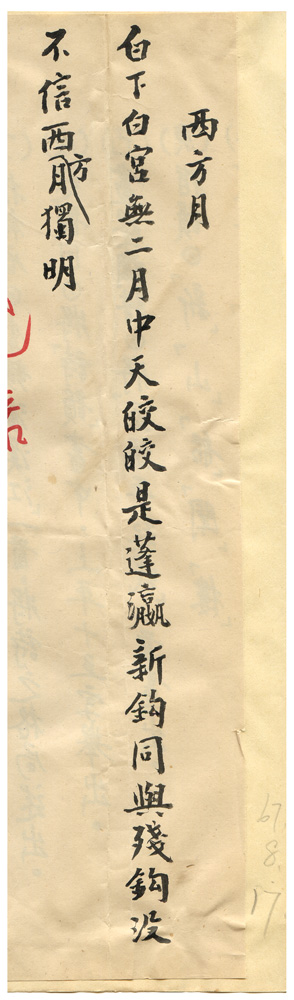 西方月
白下白宮無二月中天皎皎是蓬瀛新鈎同與殘鈎没
不信西方月獨明
67.
8.
17.